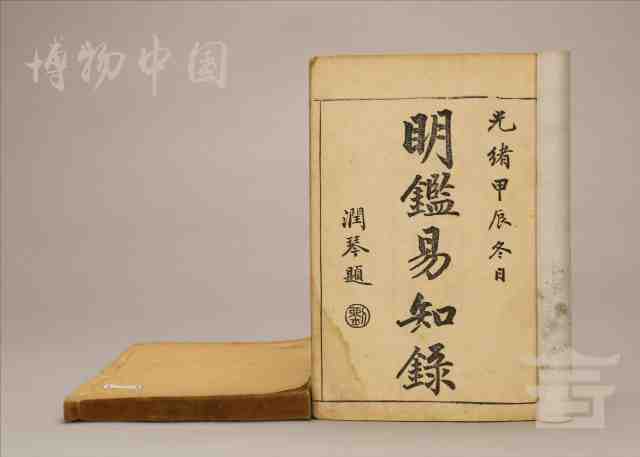 博物中国
光緒甲辰冬日
明鑑易知錄
潤琴題
劉